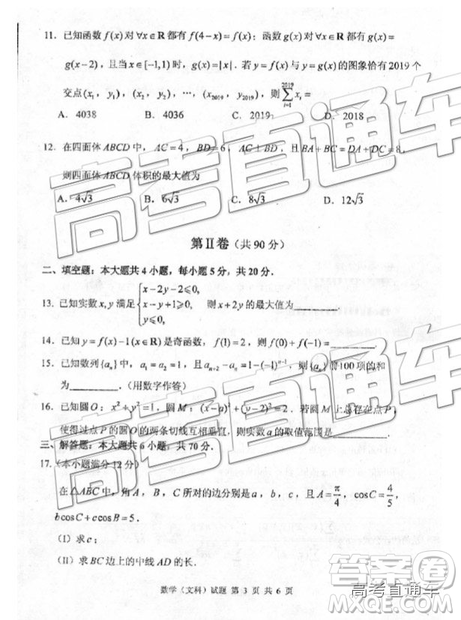 11. 已知函数 f(x) 对 ∀x∈R 都有 f(4-x)=f(x)；函数 g(x) 对 ∀x∈R 都有 g(x)=
g(x-2)，且当 x∈[-1,1) 时，g(x)=|x|．若 y=f(x) 与 y=g(x) 的图象恰有 2019 个
交点 (x₁，y₁)，(x₂，y₂)，…，(x₂₀₁₉，y₂₀₁₉)，则 ∑(i=1→2019) xᵢ =
A. 4038 B. 4036 C. 2019 D. 2018
12. 在四面体 ABCD 中，AC=4，BD=6，AC⊥BD，且 BA+BC=DA+DC=8，
则四面体 ABCD 体积的最大值为
A. 4√3 B. 6√3 C. 8√3 D. 12√3
第Ⅱ卷（共 90 分）
二、填空题：本大题共 4 小题，每小题 5 分，共 20 分．
13. 已知实数 x, y 满足 { x-2y-2≤0, x-y+1≥0, y≤0, 则 x+2y 的最大值为
14. 已知 y=f(x)-1(x∈R) 是奇函数，f(1)=2，则 f(0)+f(-1)=
15. 已知数列{aₙ}中，a₁=a₂=1，且 aₙ₊₂-aₙ=1-(-1)ⁿ⁻¹，则{aₙ}前100项的和
为________．（用数字作答）
16. 已知圆 O：x²+y²=1，圆 M：(x-a)²+(y-2)²=2．若圆 M 上总存在点 P，
使得过点 P 的圆 O 的两条切线互相垂直，则实数 a 的取值范围是________
三、解答题：本大题共 6 小题，共 70 分．
17.（本小题满分 12 分）
在△ABC 中，角 A，B，C 所对的边分别是 a，b，c，且 A=π/4，cosC=4/5，
bcosC+ccosB=5．
(I) 求 c；
(II) 求 BC 边上的中线 AD 的长．
数学（文科）试题 第 3 页 共 6 页
高考直通车
高考直通车
答案圈
高考直通车